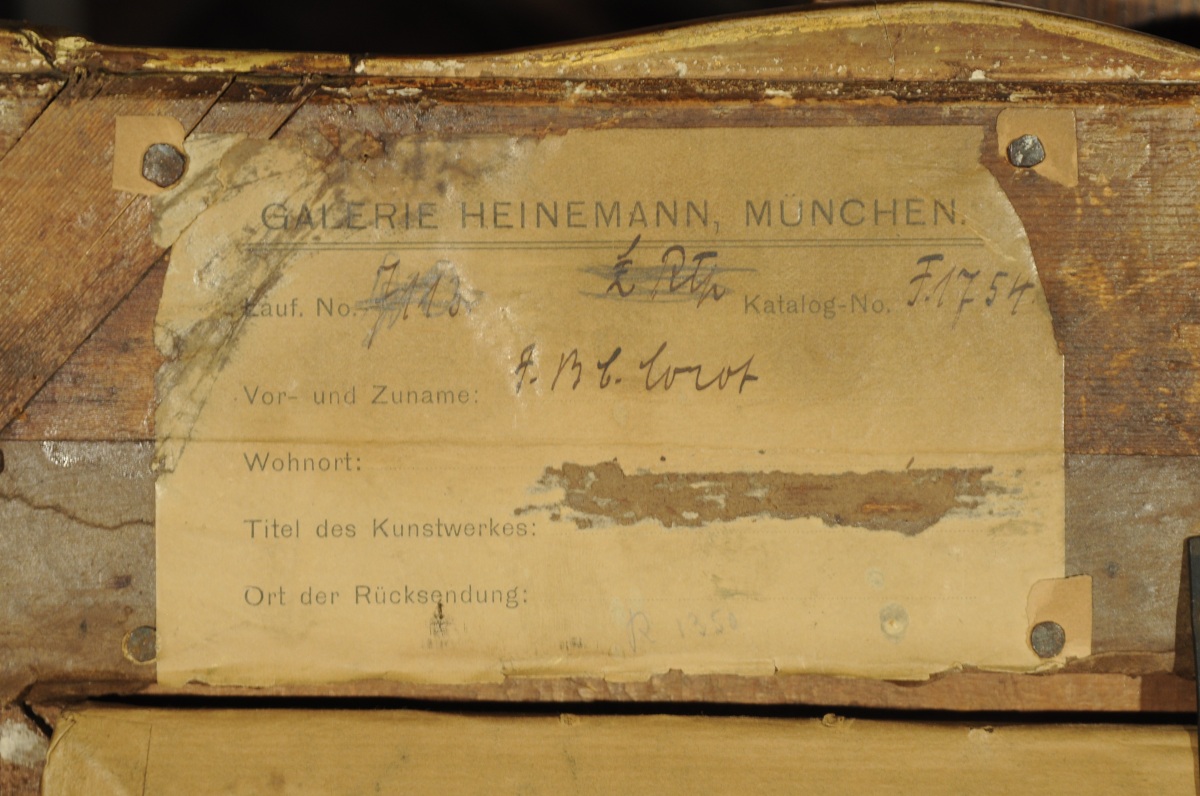 GALERIE HEINEMANN, MÜNCHEN.
Lauf. No. 7113 Katalog-No. F.1754
Vor- und Zuname: J. B C. Corot
Wohnort:
Titel des Kunstwerkes:
Ort der Rücksendung: